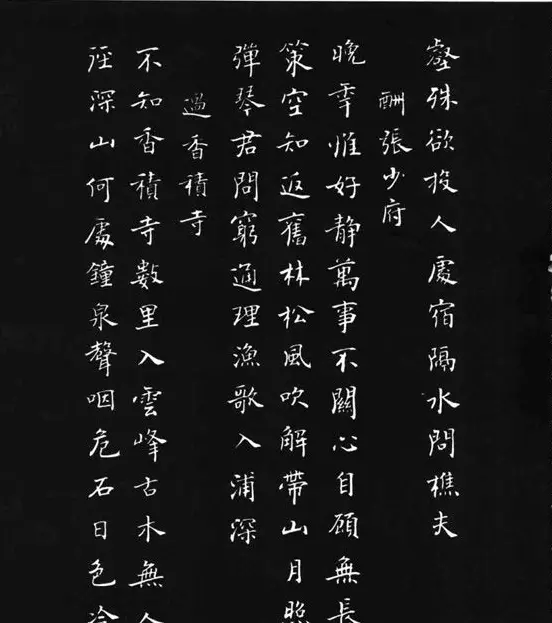 壑殊欲投人處宿隔水問樵夫
酬張少府
晚年惟好静萬事不關心自顧無長
策空知返舊林松風吹解帶山月照
彈琴君問窮通理漁歌入浦深
過香積寺
不知香積寺數里入雲峰古木無人
徑深山何處鐘泉聲咽危石日色冷